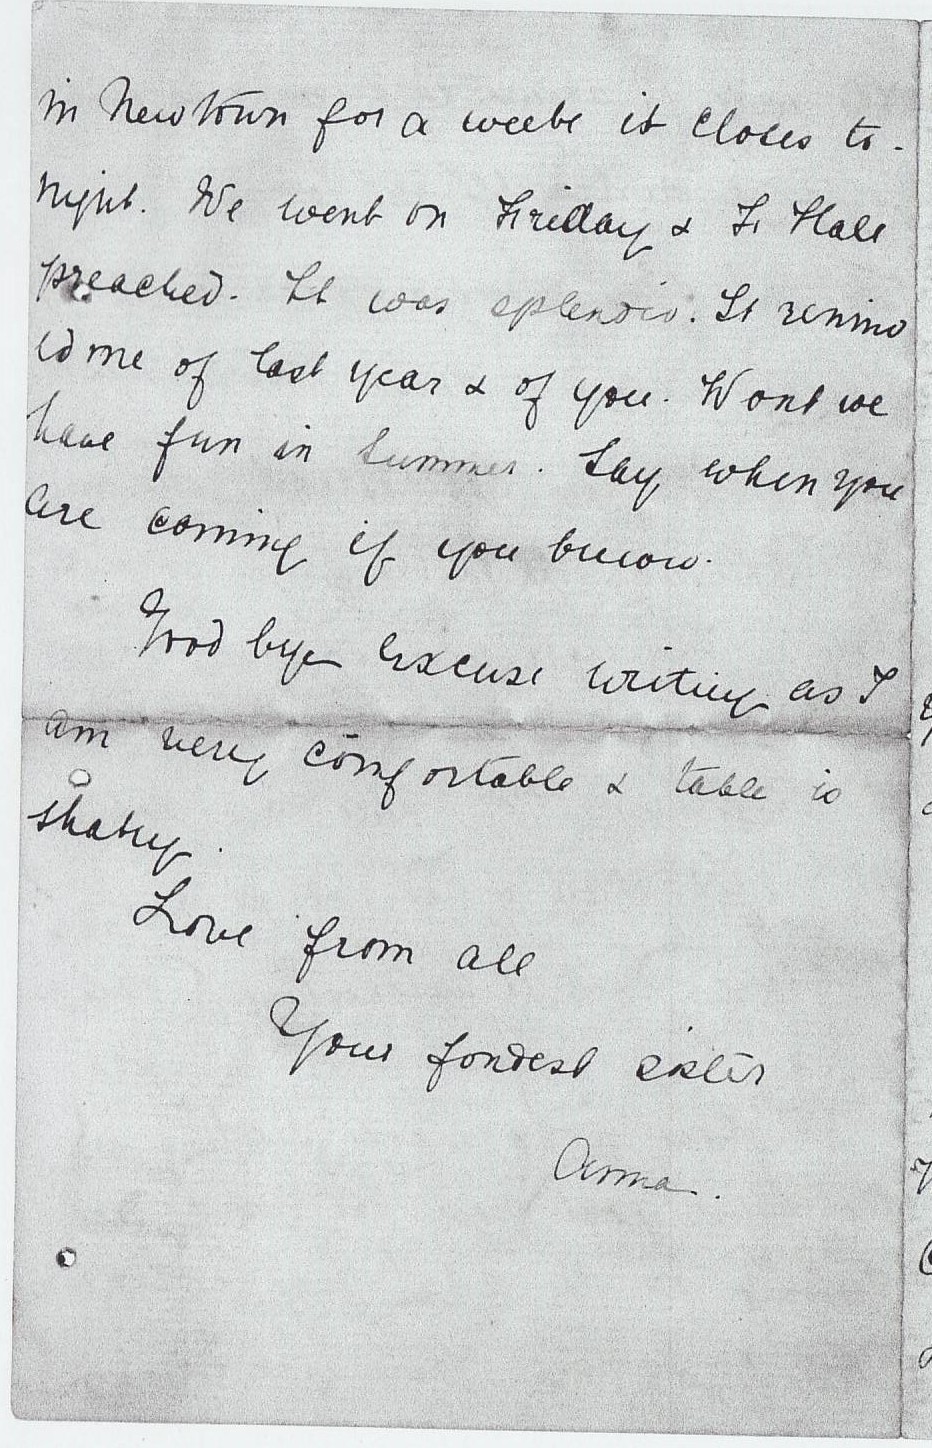 in Newtown for a week it closes to-
night. We went on Friday & Fr Hall
preached. It was splendid. It remind
ed me of last year & of you. Wont we
have fun in Summer. Say when you
are coming if you know.
Good bye Excuse writing as I
am very comfortable & table is
shaky.
Love from all
Your fondest sister